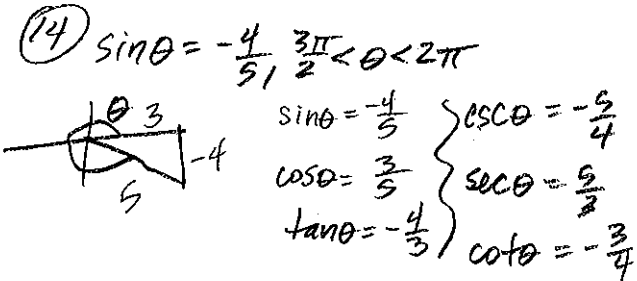 14 sinθ = -4/5, 3π/2 < θ < 2π
θ 3
-4
5
sinθ = -4/5
cosθ = 3/5
tanθ = -4/3
cscθ = -5/4
secθ = 5/3
cotθ = -3/4